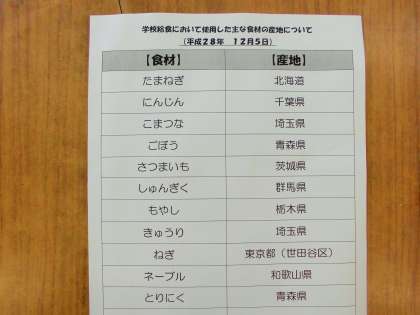 学校給食において使用した主な食材の産地について
(平成28年 12月5日)
【食材】 【産地】
たまねぎ 北海道
にんじん 千葉県
こまつな 埼玉県
ごぼう 青森県
さつまいも 茨城県
しゅんぎく 群馬県
もやし 栃木県
きゅうり 埼玉県
ねぎ 東京都(世田谷区)
ネーブル 和歌山県
とりにく 青森県